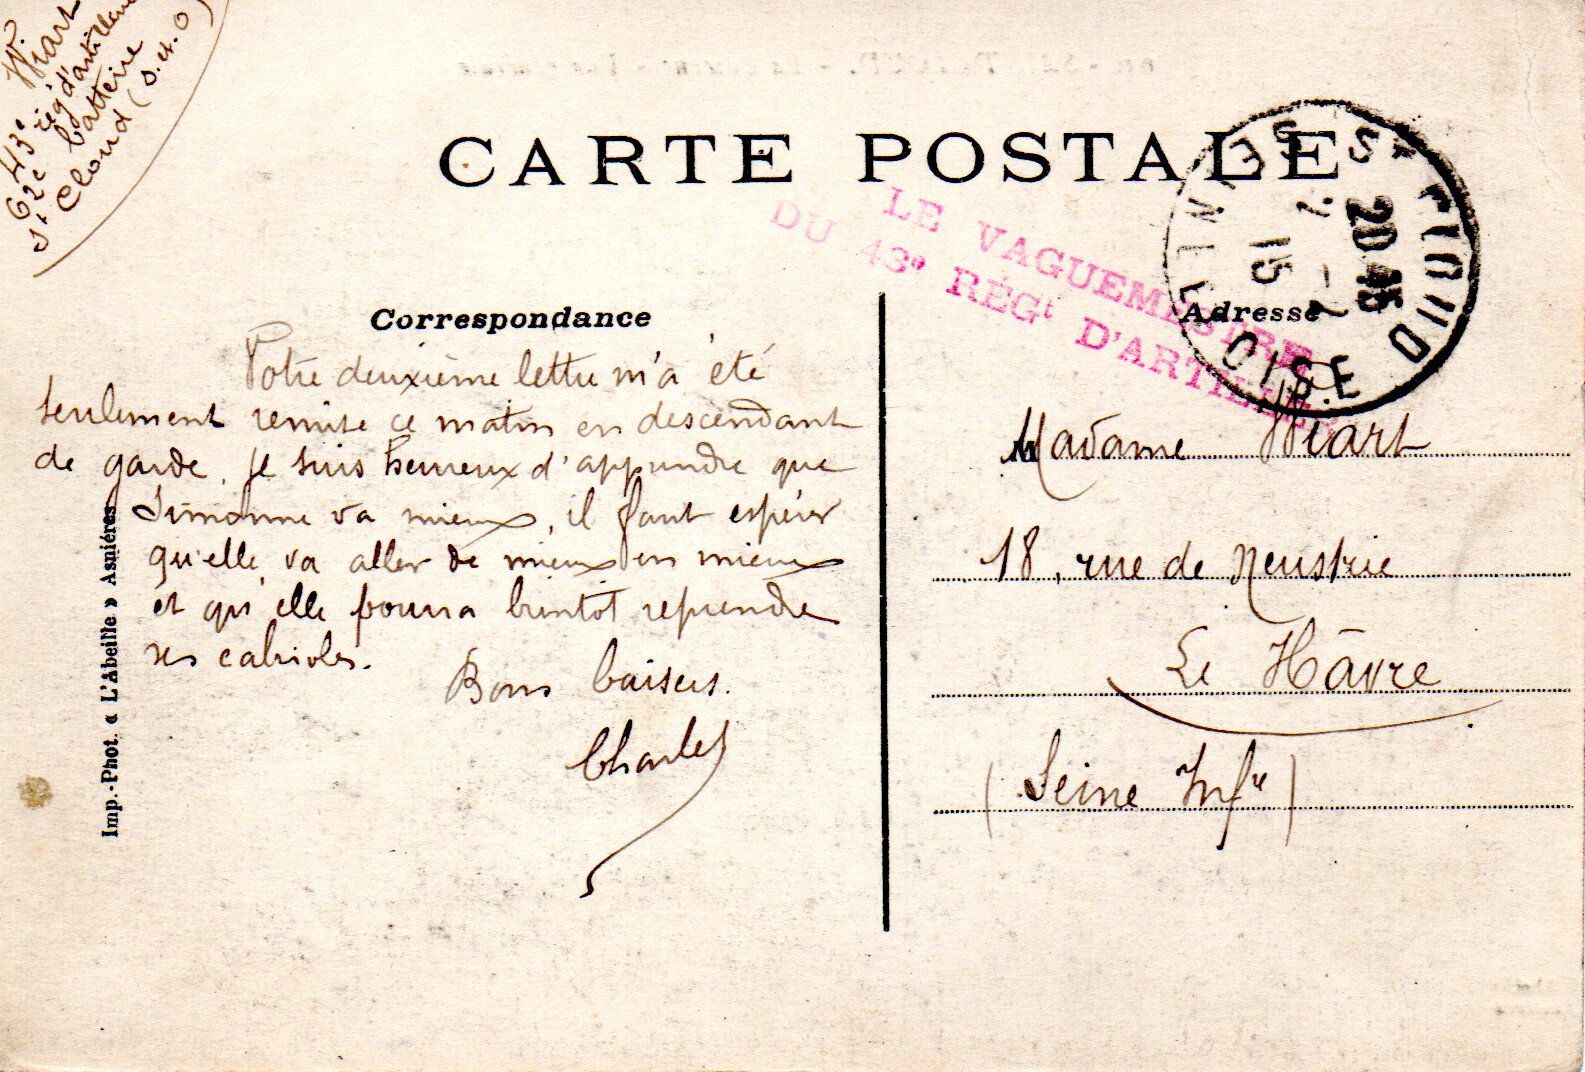 W. Wiart
43e rég d'artillerie
62e batterie
St Cloud (S. et. O)
CARTE POSTALE
LE VAGUEMESTRE
DU 43e RÉGt D'ARTILLERIE
ST CLOUD
20 45
7 - 2
15
SEINE ET OISE
Correspondance
Adresse
Votre deuxième lettre m'a été
seulement remise ce matin en descendant
de garde. Je suis heureux d'apprendre que
Simonne va mieux, il faut espérer
qu'elle va aller de mieux en mieux
et qu'elle pourra bientôt reprendre
ses cabrioles.
Bons baisers.
Charles
Madame Wiart
18, rue de Neustrie
Le Hâvre
(Seine Infre)
Imp.-Phot. « L'Abeille » Asnières